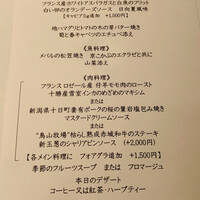 フランス産ホワイトアスパラガスと白魚のフリット
白い卵のオランデーズソース 日向夏風味
【キャビア5g追加 +1,500円】
地ハマグリとトマトの木の芽バター焼き
筍と春キャベツのエチュベ添え
〈魚料理〉
メバルの松笠焼き 京こかぶのエクラゼと共に
山菜添え
〈肉料理〉
フランス ロゼール産 仔羊モモ肉のロースト
十勝産雪室インカのめざめのマキシム
または
新潟県十日町妻有ポークの桜の葉岩塩包み焼き
マスタードクリームソース
または
“鳥山牧場”枯らし熟成赤城和牛のステーキ
新玉葱のシャリアピンソース (+2,000円)
【各メイン料理に フォアグラ追加 +1,500円】
季節のフルーツスープ または フロマージュ
本日のデザート
コーヒー又は紅茶・ハーブティー